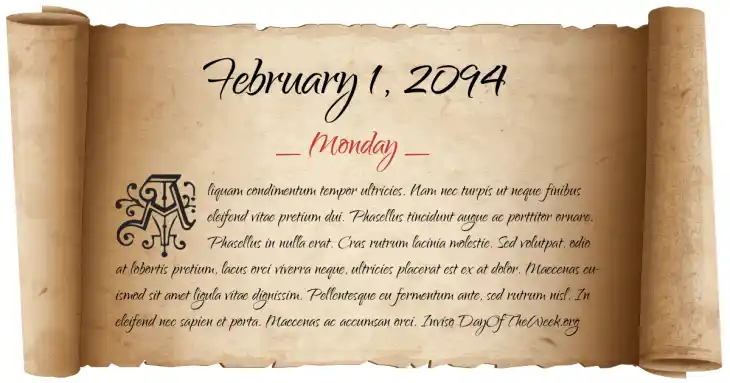 February 1, 2094
_ Monday _
Aliquam condimentum tempor ultricies. Nam nec turpis ut neque finibus
eleifend vitae pretium dui. Phasellus tincidunt augue ac porttitor ornare.
Phasellus in nulla erat. Cras rutrum lacinia molestie. Sed volutpat, odio
at lobortis pretium, lacus orci viverra neque, ultricies placerat est ex at dolor. Maecenas eu-
ismod sit amet ligula vitae dignissim. Pellentesque eu fermentum ante, sed rutrum nisl. In
eleifend nec sapien et porta. Maecenas ac accumsan orci. Inviso DayOfTheWeek.org